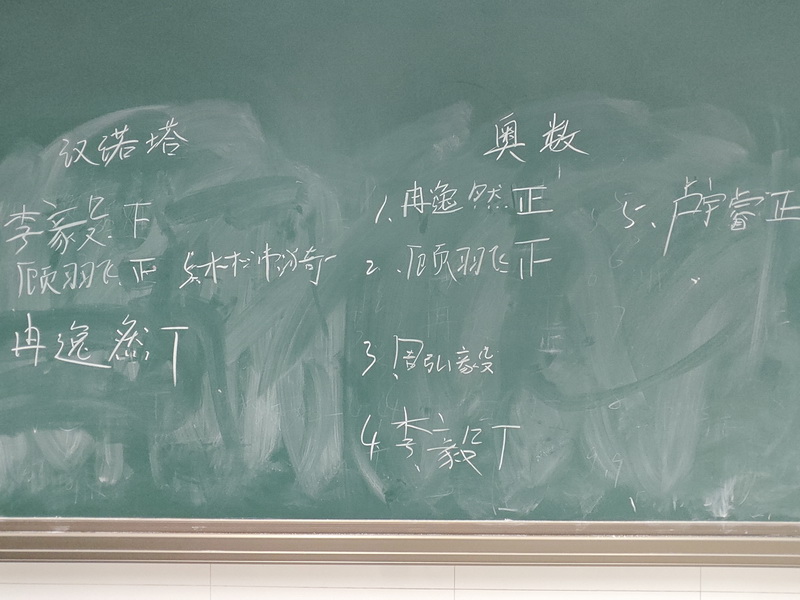 汉诺塔
李毅 下
顾羽飞 正
冉逸然 T
奥数
1. 冉逸然 正
2. 顾羽飞 正
3. 周弘毅
4. 李毅 T
5. 卢宇睿 正